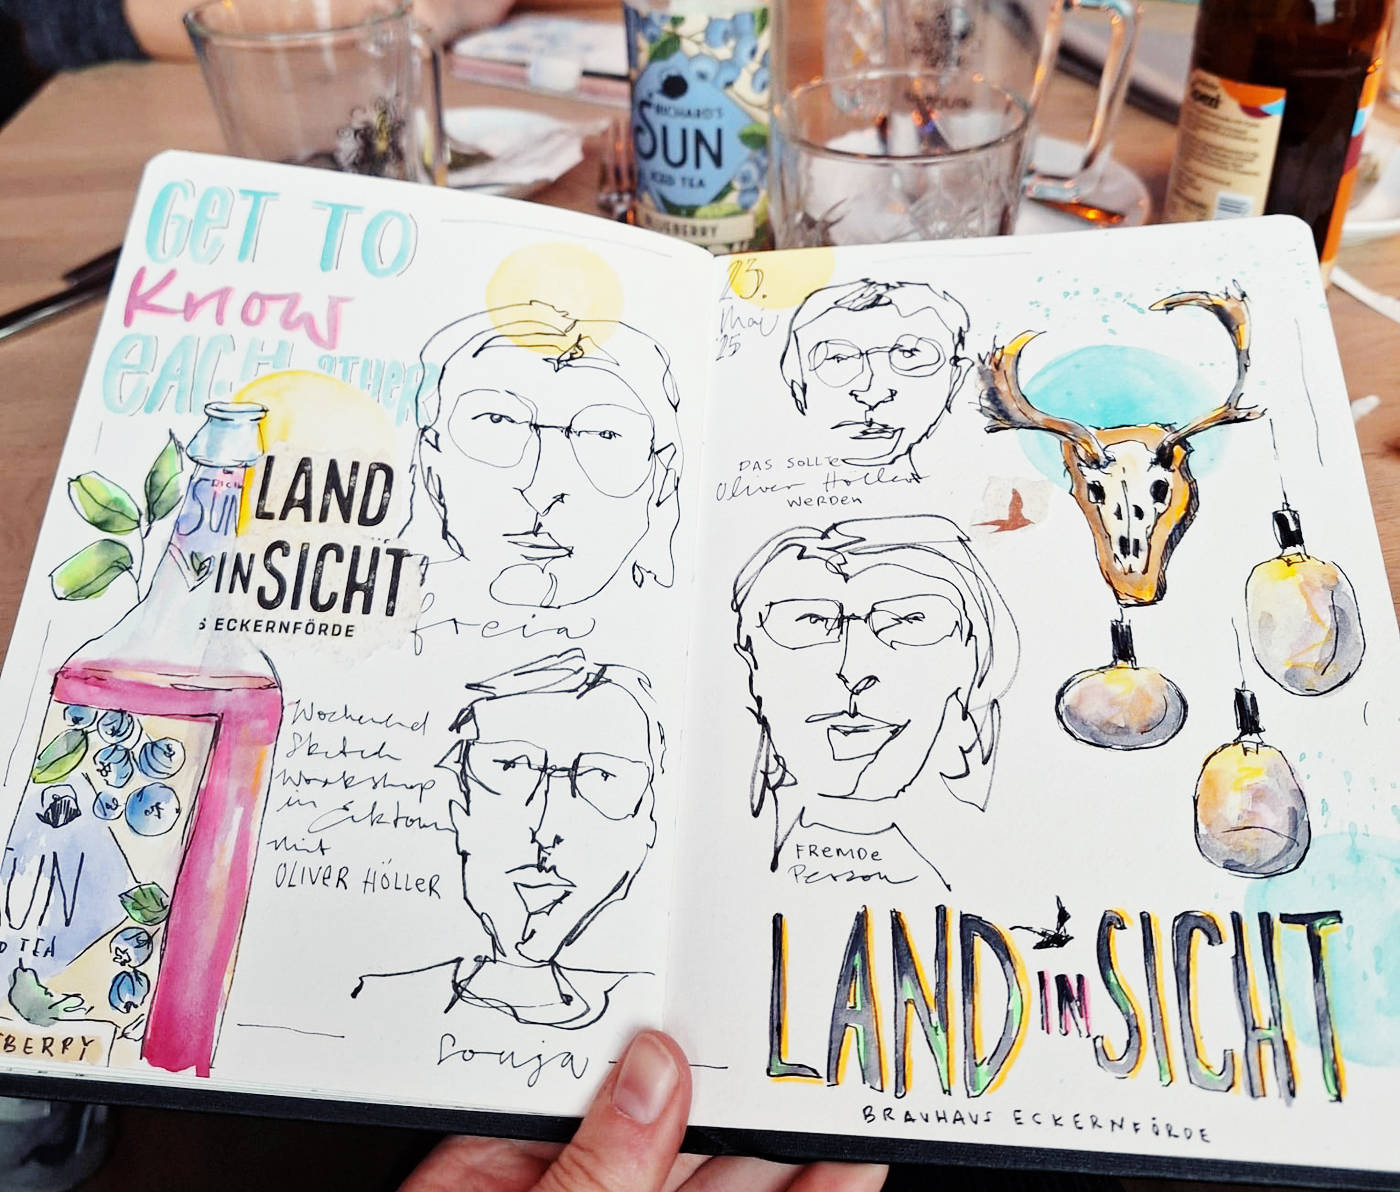 RICHARD'S
SUN
ICED TEA
BLUEBERRY
GET TO
Know
EACH OTHER
SUN
LAND
IN SICHT
ECKERNFÖRDE
freia
Wochenend
Sketch
Workshop
in Ecktown
mit
OLIVER HÖLLER
SUN
TEA
BERRY
Sonja
23.
Mai
25
DAS SOLLTE
Oliver Höller
WERDEN
FREMDE
Person
LAND IN SICHT
BRAUHAUS ECKERNFÖRDE